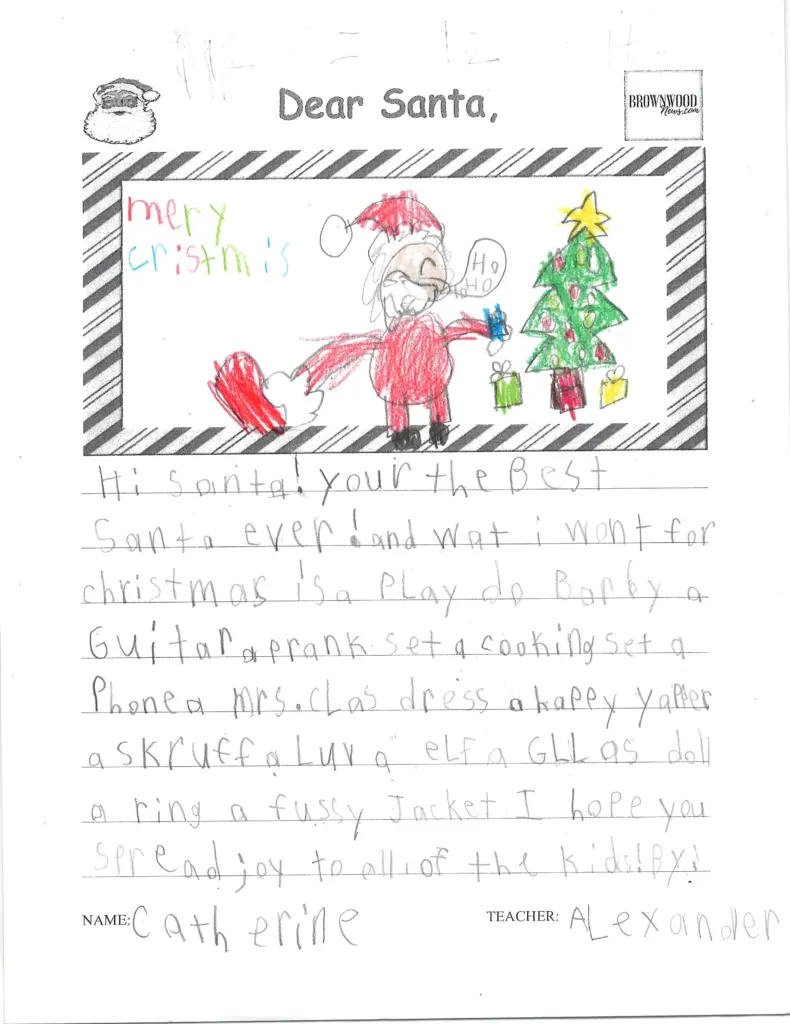 Dear Santa,
BROWNWOOD
News.com
mery
cristmis
Ho
HO
Hi Santa! your the Best
Santa ever! and wat i wont for
christmas is a PLay do Barby a
Guitar a prank set a cooking set a
Phone a Mrs. cLas dress a happy yapper
a skruff a Luv a eLf a GLL as doll
a ring a fussy Jacket I hope you
spread joy to all of the kids! By!
NAME: Catherine
TEACHER: ALexander